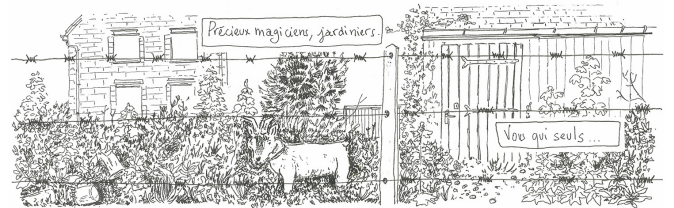 Précieux magiciens, jardiniers.
Vous qui seuls ...